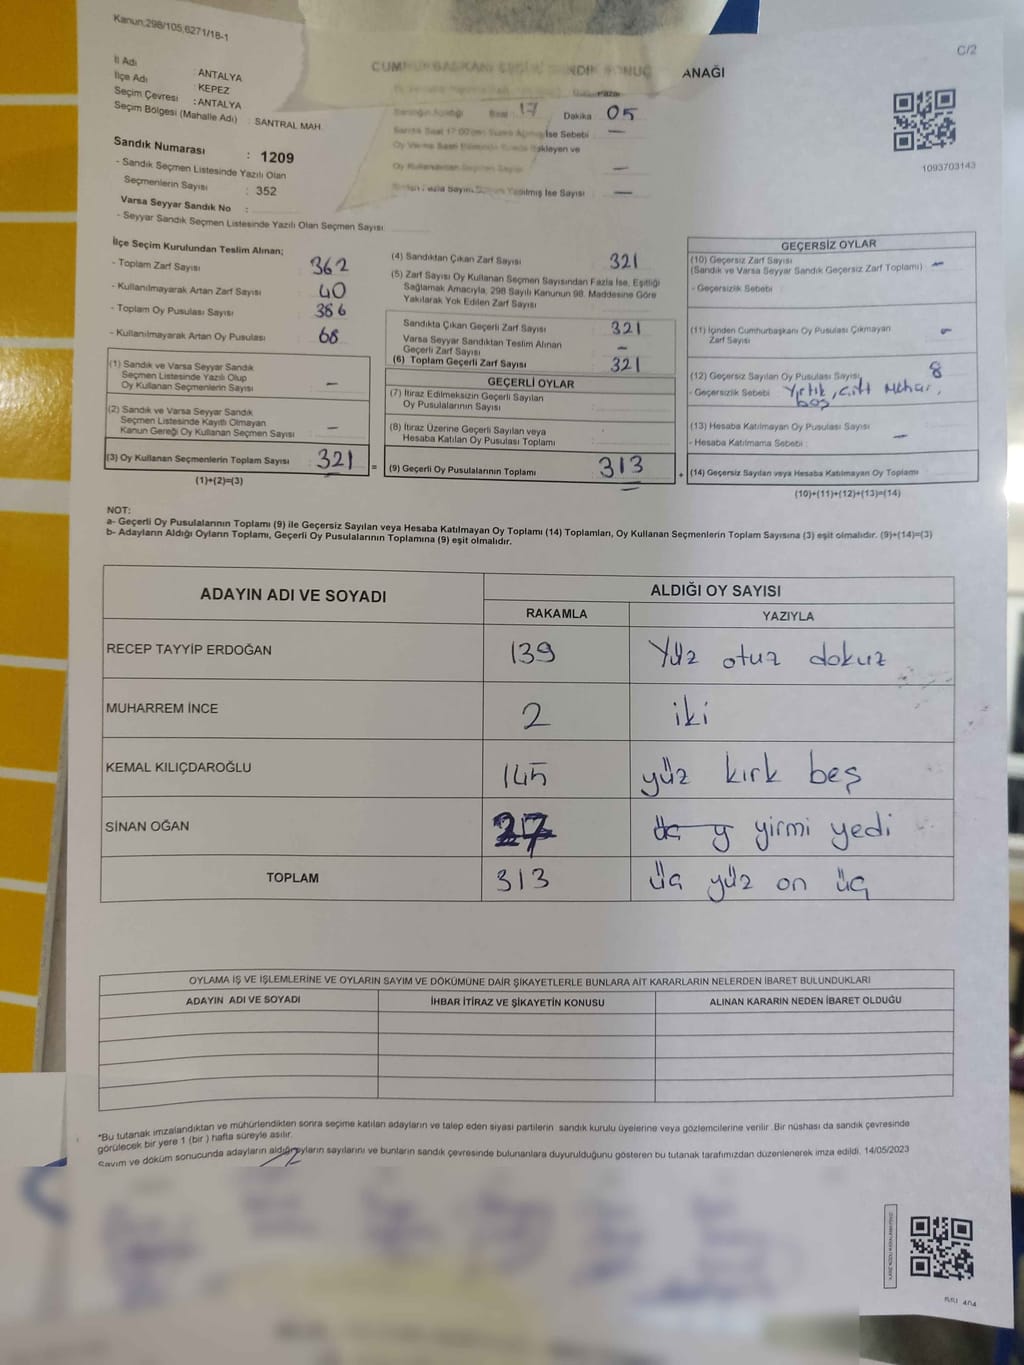 Kanun:298/105,6271/18-1
C/2
ANAĞI
İl Adı : ANTALYA
İlçe Adı : KEPEZ
Seçim Çevresi : ANTALYA
Seçim Bölgesi (Mahalle Adı) : SANTRAL MAH.
Saat 17 Dakika 05
İse Sebebi —
1093703143
Sandık Numarası : 1209
- Sandık Seçmen Listesinde Yazılı Olan
Seçmenlerin Sayısı : 352
Varsa Seyyar Sandık No :
- Seyyar Sandık Seçmen Listesinde Yazılı Olan Seçmen Sayısı
İlçe Seçim Kurulundan Teslim Alınan;
- Toplam Zarf Sayısı 362
- Kullanılmayarak Artan Zarf Sayısı 40
- Toplam Oy Pusulası Sayısı 386
- Kullanılmayarak Artan Oy Pusulası 68
(1) Sandık ve Varsa Seyyar Sandık
Seçmen Listesinde Yazılı Olup
Oy Kullanan Seçmenlerin Sayısı —
(2) Sandık ve Varsa Seyyar Sandık
Seçmen Listesinde Kayıtlı Olmayan
Kanun Gereği Oy Kullanan Seçmen Sayısı —
(3) Oy Kullanan Seçmenlerin Toplam Sayısı 321 =
(1)+(2)=(3)
(4) Sandıktan Çıkan Zarf Sayısı 321
(5) Zarf Sayısı Oy Kullanan Seçmen Sayısından Fazla İse, Eşitliği
Sağlamak Amacıyla, 298 Sayılı Kanunun 98. Maddesine Göre
Yakılarak Yok Edilen Zarf Sayısı
Sandıkta Çıkan Geçerli Zarf Sayısı 321
Varsa Seyyar Sandıktan Teslim Alınan
Geçerli Zarf Sayısı —
(6) Toplam Geçerli Zarf Sayısı 321
GEÇERLİ OYLAR
(7) İtiraz Edilmeksizin Geçerli Sayılan
Oy Pusulalarının Sayısı
(8) İtiraz Üzerine Geçerli Sayılan veya
Hesaba Katılan Oy Pusulası Toplamı
(9) Geçerli Oy Pusulalarının Toplamı 313 +
GEÇERSİZ OYLAR
(10) Geçersiz Zarf Sayısı
(Sandık ve Varsa Seyyar Sandık Geçersiz Zarf Toplamı) —
- Geçersizlik Sebebi :
(11) İçinden Cumhurbaşkanı Oy Pusulası Çıkmayan
Zarf Sayısı —
(12) Geçersiz Sayılan Oy Pusulası Sayısı 8
- Geçersizlik Sebebi Yırtık, çift mühür,
boş
(13) Hesaba Katılmayan Oy Pusulası Sayısı
- Hesaba Katılmama Sebebi : —
(14) Geçersiz Sayılan veya Hesaba Katılmayan Oy Toplamı
(10)+(11)+(12)+(13)=(14)
NOT:
a- Geçerli Oy Pusulalarının Toplamı (9) ile Geçersiz Sayılan veya Hesaba Katılmayan Oy Toplamı (14) Toplamları, Oy Kullanan Seçmenlerin Toplam Sayısına (3) eşit olmalıdır. (9)+(14)=(3)
b- Adayların Aldığı Oyların Toplamı, Geçerli Oy Pusulalarının Toplamına (9) eşit olmalıdır.
ADAYIN ADI VE SOYADI
ALDIĞI OY SAYISI
RAKAMLA YAZIYLA
RECEP TAYYİP ERDOĞAN 139 Yüz otuz dokuz
MUHARREM İNCE 2 iki
KEMAL KILIÇDAROĞLU 145 yüz kırk beş
SİNAN OĞAN 27 yirmi yedi
TOPLAM 313 üç yüz on üç
OYLAMA İŞ VE İŞLEMLERİNE VE OYLARIN SAYIM VE DÖKÜMÜNE DAİR ŞİKAYETLERLE BUNLARA AİT KARARLARIN NELERDEN İBARET BULUNDUKLARI
ADAYIN ADI VE SOYADI İHBAR İTİRAZ VE ŞİKAYETİN KONUSU ALINAN KARARIN NEDEN İBARET OLDUĞU
*Bu tutanak imzalandıktan ve mühürlendikten sonra seçime katılan adayların ve talep eden siyasi partilerin sandık kurulu üyelerine veya gözlemcilerine verilir. Bir nüshası da sandık çevresinde
görülecek bir yere 1 (bir ) hafta süreyle asılır.
Sayım ve döküm sonucunda adayların aldığı oyların sayılarını ve bunların sandık çevresinde bulunanlara duyurulduğunu gösteren bu tutanak tarafımızdan düzenlenerek imza edildi. 14/05/2023